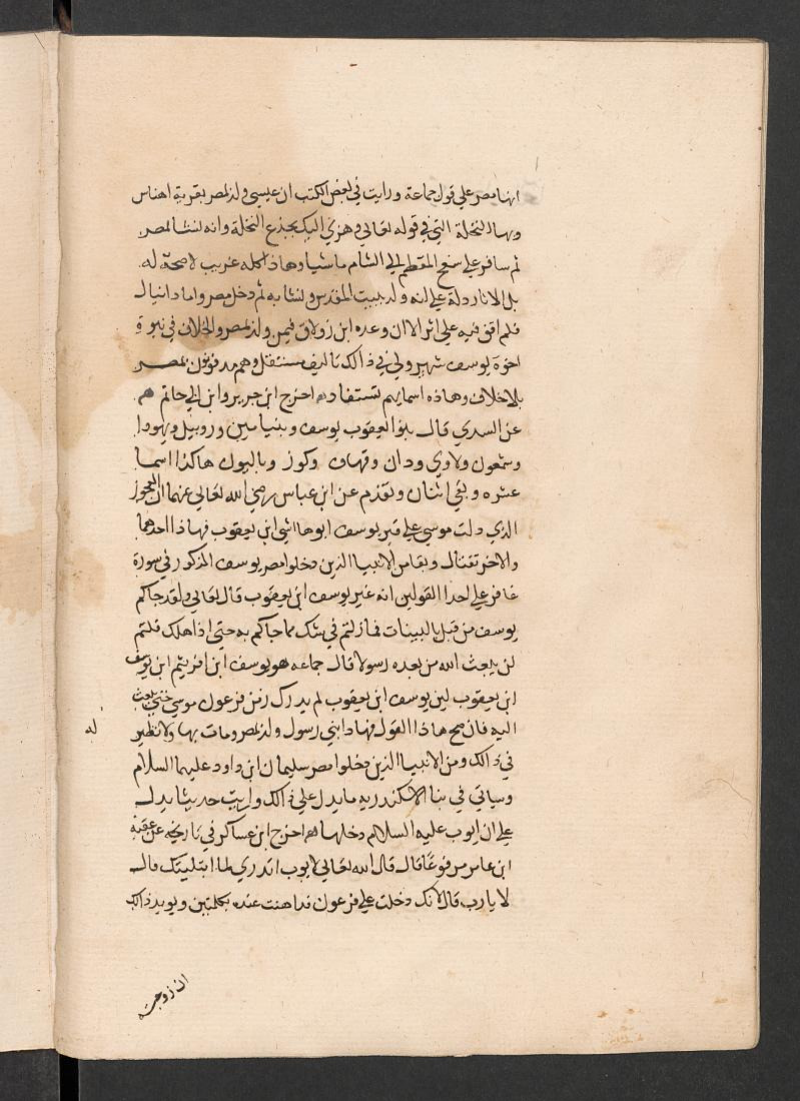 انها مصر علي قول جماعة ورايت في بعض الكتب ان عيسي ولد بمصر بقرية اهناس
وبها النخلة التي في قوله تعالي وهزي اليك بجذع النخلة وانه نشا بمصر
ثم سافر علي سفح المقطم الي الشام ماشيا وهاذا كله غريب لا صحة له
بل الاثار دلة علي انه ولد ببيت المقدس ونشا به ثم دخل مصر واما دانيال
فلم اقف فيه علي اثر الا ان وعده ابن زولاق فيمن ولد بمصر والخلاف في نبوة
اخوة يوسف شهير ولي في ذالك تاليف مستقل وهم مدفونون بمصر
بلا خلاف وهاذه اسمايهم تستفاد اخرج ابن جرير وابن ابي حاتم
عن السدي قال بنوا يعقوب يوسف وبنيامين وروبيل ويهودا
وشمعون ولاوي ودان وقهاف وكوز وباليون هاكذا اسما
عشره وبقي اثنان وتقدم عن ابن عباس رضي الله تعالي عنهما ان العجوز
الذي دلت موسي علي قبر يوسف ابوها اشي ابن يعقوب فهاذا احدهما
والاخر تفتال وبقا من الانبيا الذين دخلوا مصر يوسف المذكور في سورة
غافر علي احدا القولين انه غير يوسف ابن يعقوب قال تعالي ولقد جاكم
يوسف من قبل بالبينات فما زلتم في شك مما جاكم به حتي اذا هلك قلتم
لن يبعث الله من بعده رسولا قال جماعه هو يوسف ابن افريثم ابن يوسف
ابن يعقوب لان يوسف ابن يعقوب لم يدرك زمن فرعون موسي حتي يبعث
اليه فان صح هاذا القول فهاذا نبي رسول ولد بمصر ومات بها ولا نظير له
في ذالك ومن الانبيا الذين دخلوا مصر سليمان ابن داود عليهما السلام
وسياتي في بنا الاسكندريه ما يدل علي ذالك ورايت حديثا يدل
علي ان ايوب عليه السلام دخلها اخرج ابن عساكر في تاريخه عن عقبه
ابن عامر مرفوعا قال قال الله تعالي لايوب اتدري لما ابتليتك قال
لا يا رب قال لانك دخلت علي فرعون فداهنت عنده بكلمتين ويويد ذالك
ان زوجته